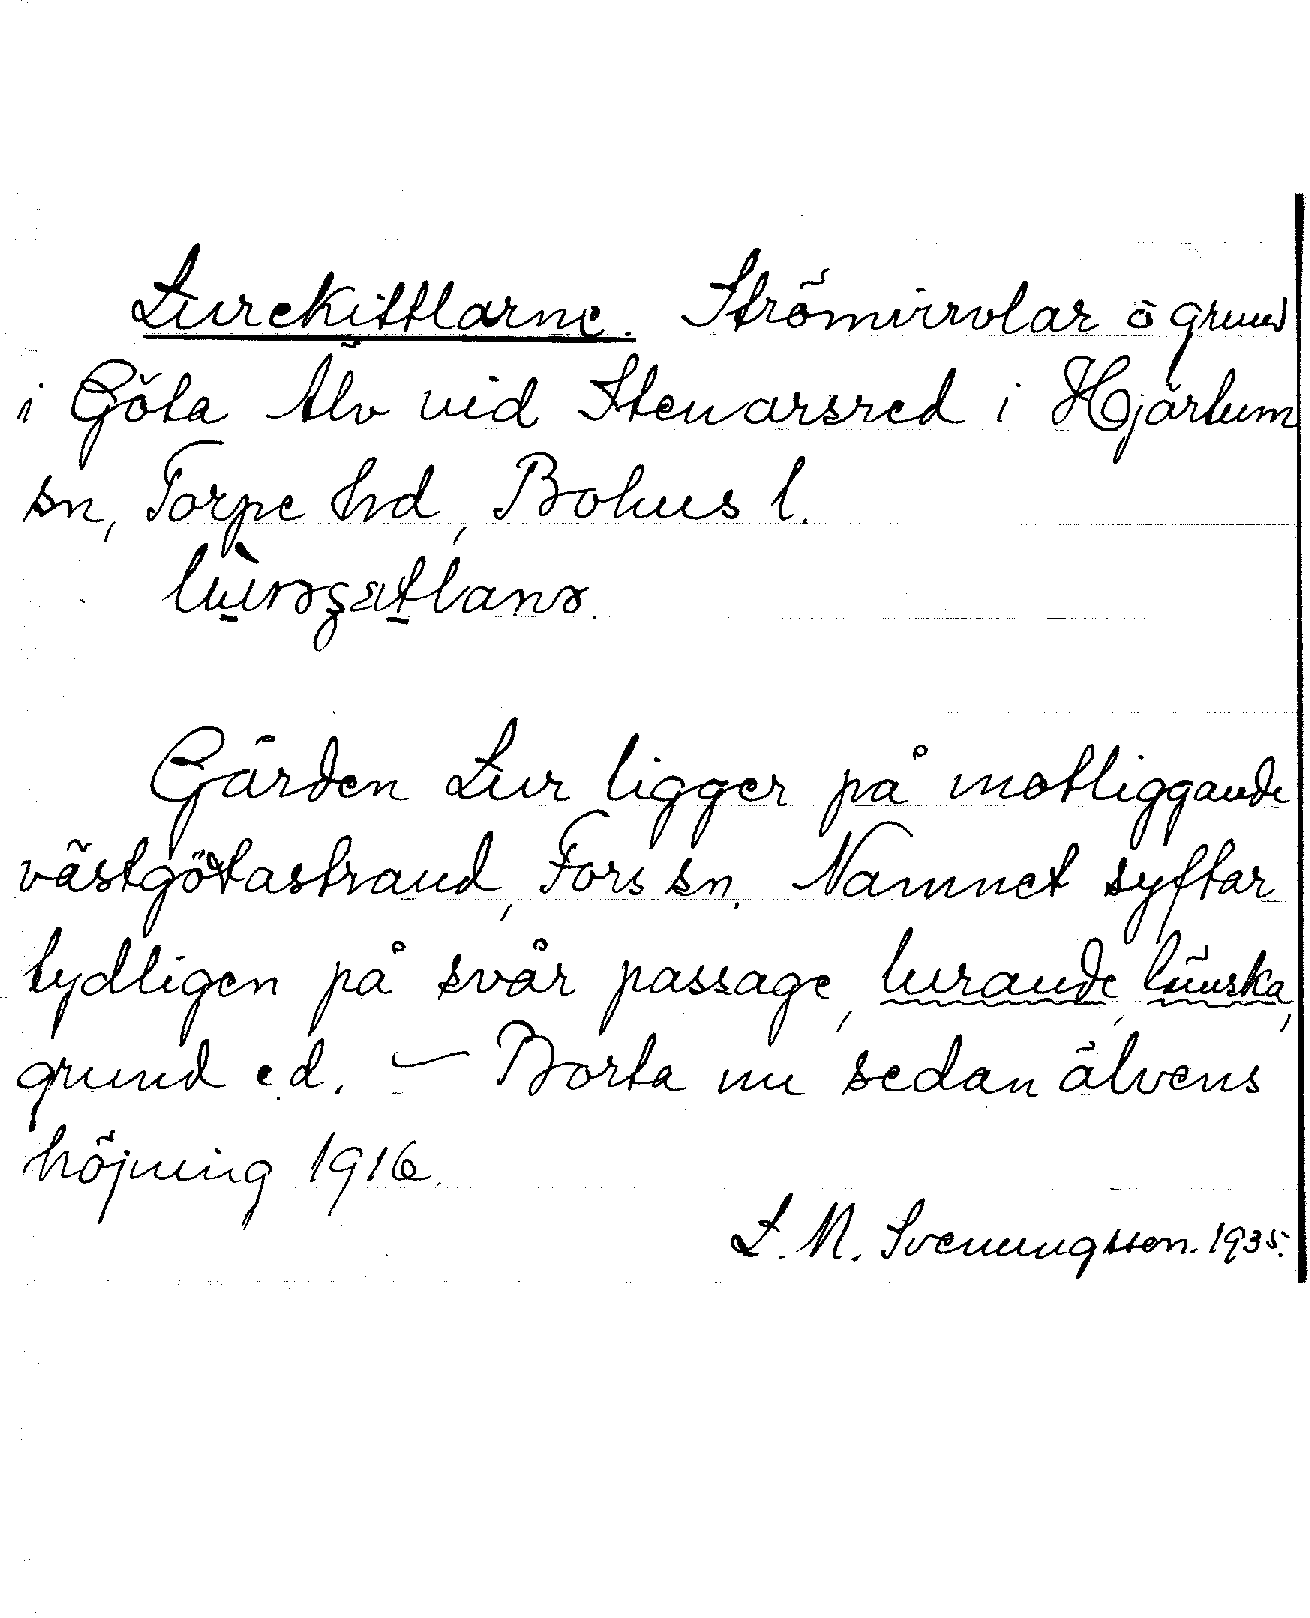 Lurekittlarne. Strömvirvlar o grund
i Göta Älv vid Stenarsred i Hjärtum
sn, Torpe hrd, Bohus l.
Gården Lur ligger på motliggande
västgötastrand, Fors sn. Namnet syftar
tydligen på svår passage, lurande, lünska,
grund e.d. — Borta nu sedan älvens
höjning 1916.
L. M. Svenungsson. 1935.